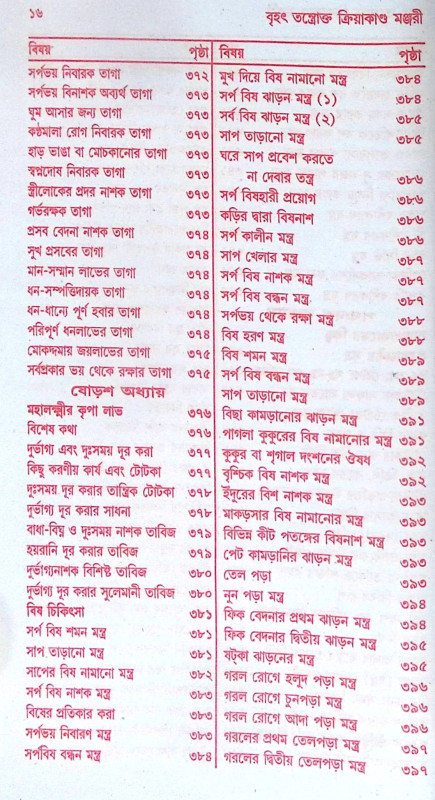 ১৬
বৃহৎ তন্ত্রোক্ত ক্রিয়াকাণ্ড মঞ্জরী
বিষয় পৃষ্ঠা
সর্পভয় নিবারক তাগা ৩৭২
সর্পভয় বিনাশক অব্যর্থ তাগা ৩৭৩
ঘুম আসার জন্য তাগা ৩৭৩
কণ্ঠমালা রোগ নিবারক তাগা ৩৭৩
হাড় ভাঙা বা মোচকানোর তাগা ৩৭৩
স্বপ্নদোষ নিবারক তাগা ৩৭৩
স্ত্রীলোকের প্রদর নাশক তাগা ৩৭৩
গর্ভরক্ষক তাগা ৩৭৩
প্রসব বেদনা নাশক তাগা ৩৭৪
সুখ প্রসবের তাগা ৩৭৪
মান-সম্মান লাভের তাগা ৩৭৪
ধন-সম্পত্তিদায়ক তাগা ৩৭৪
ধন-ধান্যে পূর্ণ হবার তাগা ৩৭৪
পরিপূর্ণ ধনলাভের তাগা ৩৭৪
মোকদ্দমায় জয়লাভের তাগা ৩৭৫
সর্বপ্রকার ভয় থেকে রক্ষার তাগা ৩৭৫
ষোড়শ অধ্যায়
মহালক্ষ্মীর কৃপা লাভ ৩৭৬
বিশেষ কথা ৩৭৬
দুর্ভাগ্য এবং দুঃসময় দূর করা ৩৭৭
কিছু করণীয় কার্য এবং টোটকা ৩৭৭
দুঃসময় দূর করার তান্ত্রিক টোটকা ৩৭৮
দুর্ভাগ্য দূর করার সাধনা ৩৭৮
বাধা-বিঘ্ন ও দুঃসময় নাশক তাবিজ ৩৭৯
হয়রানি দূর করার তাবিজ ৩৭৯
দুর্ভাগ্যনাশক বিশিষ্ট তাবিজ ৩৮০
দুর্ভাগ্য দূর করার সুলেমানী তাবিজ ৩৮০
বিষ চিকিৎসা ৩৮১
সর্প বিষ শমন মন্ত্র ৩৮১
সাপ তাড়ানো মন্ত্র ৩৮১
সাপের বিষ নামানো মন্ত্র ৩৮২
সর্প বিষ নাশক মন্ত্র ৩৮৩
বিষের প্রতিকার করা ৩৮৩
সর্পভয় নিবারণ মন্ত্র ৩৮৩
সর্পবিষ বন্ধন মন্ত্র ৩৮৪
বিষয় পৃষ্ঠা
মুখ দিয়ে বিষ নামানো মন্ত্র ৩৮৪
সর্প বিষ ঝাড়ন মন্ত্র (১) ৩৮৪
সর্ব বিষ ঝাড়ন মন্ত্র (২) ৩৮৫
সাপ তাড়ানো মন্ত্র ৩৮৫
ঘরে সাপ প্রবেশ করতে
না দেবার তন্ত্র ৩৮৬
সর্প বিষহারী প্রয়োগ ৩৮৬
কড়ির দ্বারা বিষনাশ ৩৮৬
সর্প কালীন মন্ত্র ৩৮৬
সাপ খেলার মন্ত্র ৩৮৭
সর্প বিষ নাশক মন্ত্র ৩৮৭
সর্প বিষ বন্ধন মন্ত্র ৩৮৭
সর্পভয় থেকে রক্ষা মন্ত্র ৩৮৮
বিষ হরণ মন্ত্র ৩৮৮
বিষ শমন মন্ত্র ৩৮৯
সর্প বিষ বন্ধন মন্ত্র ৩৮৯
সাপ তাড়ানো মন্ত্র ৩৮৯
বিছা কামড়ানোর ঝাড়ন মন্ত্র ৩৯১
পাগলা কুকুরের বিষ নামানোর মন্ত্র ৩৯১
কুকুর বা শৃগাল দংশনের ঔষধ ৩৯২
বৃশ্চিক বিষ নাশক মন্ত্র ৩৯২
ইঁদুরের বিশ নাশক মন্ত্র ৩৯৩
মাকড়সার বিষ নামানোর মন্ত্র ৩৯৩
বিভিন্ন কীট পতঙ্গের বিষনাশ মন্ত্র ৩৯৩
পেট কামড়ানির ঝাড়ন মন্ত্র ৩৯৩
তেল পড়া ৩৯৩
নুন পড়া মন্ত্র ৩৯৪
ফিক বেদনার প্রথম ঝাড়ন মন্ত্র ৩৯৪
ফিক বেদনার দ্বিতীয় ঝাড়ন মন্ত্র ৩৯৫
ষট্কা ঝাড়নের মন্ত্র ৩৯৫
গরল রোগে হলুদ পড়া মন্ত্র ৩৯৬
গরল রোগে চুনপড়া মন্ত্র ৩৯৬
গরল রোগে আদা পড়া মন্ত্র ৩৯৬
গরলের প্রথম তেলপড়া মন্ত্র ৩৯৭
গরলের দ্বিতীয় তেলপড়া মন্ত্র ৩৯৭